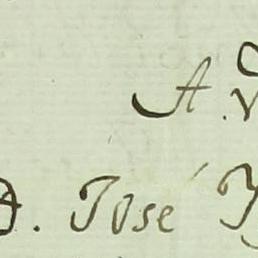 A.
D. José